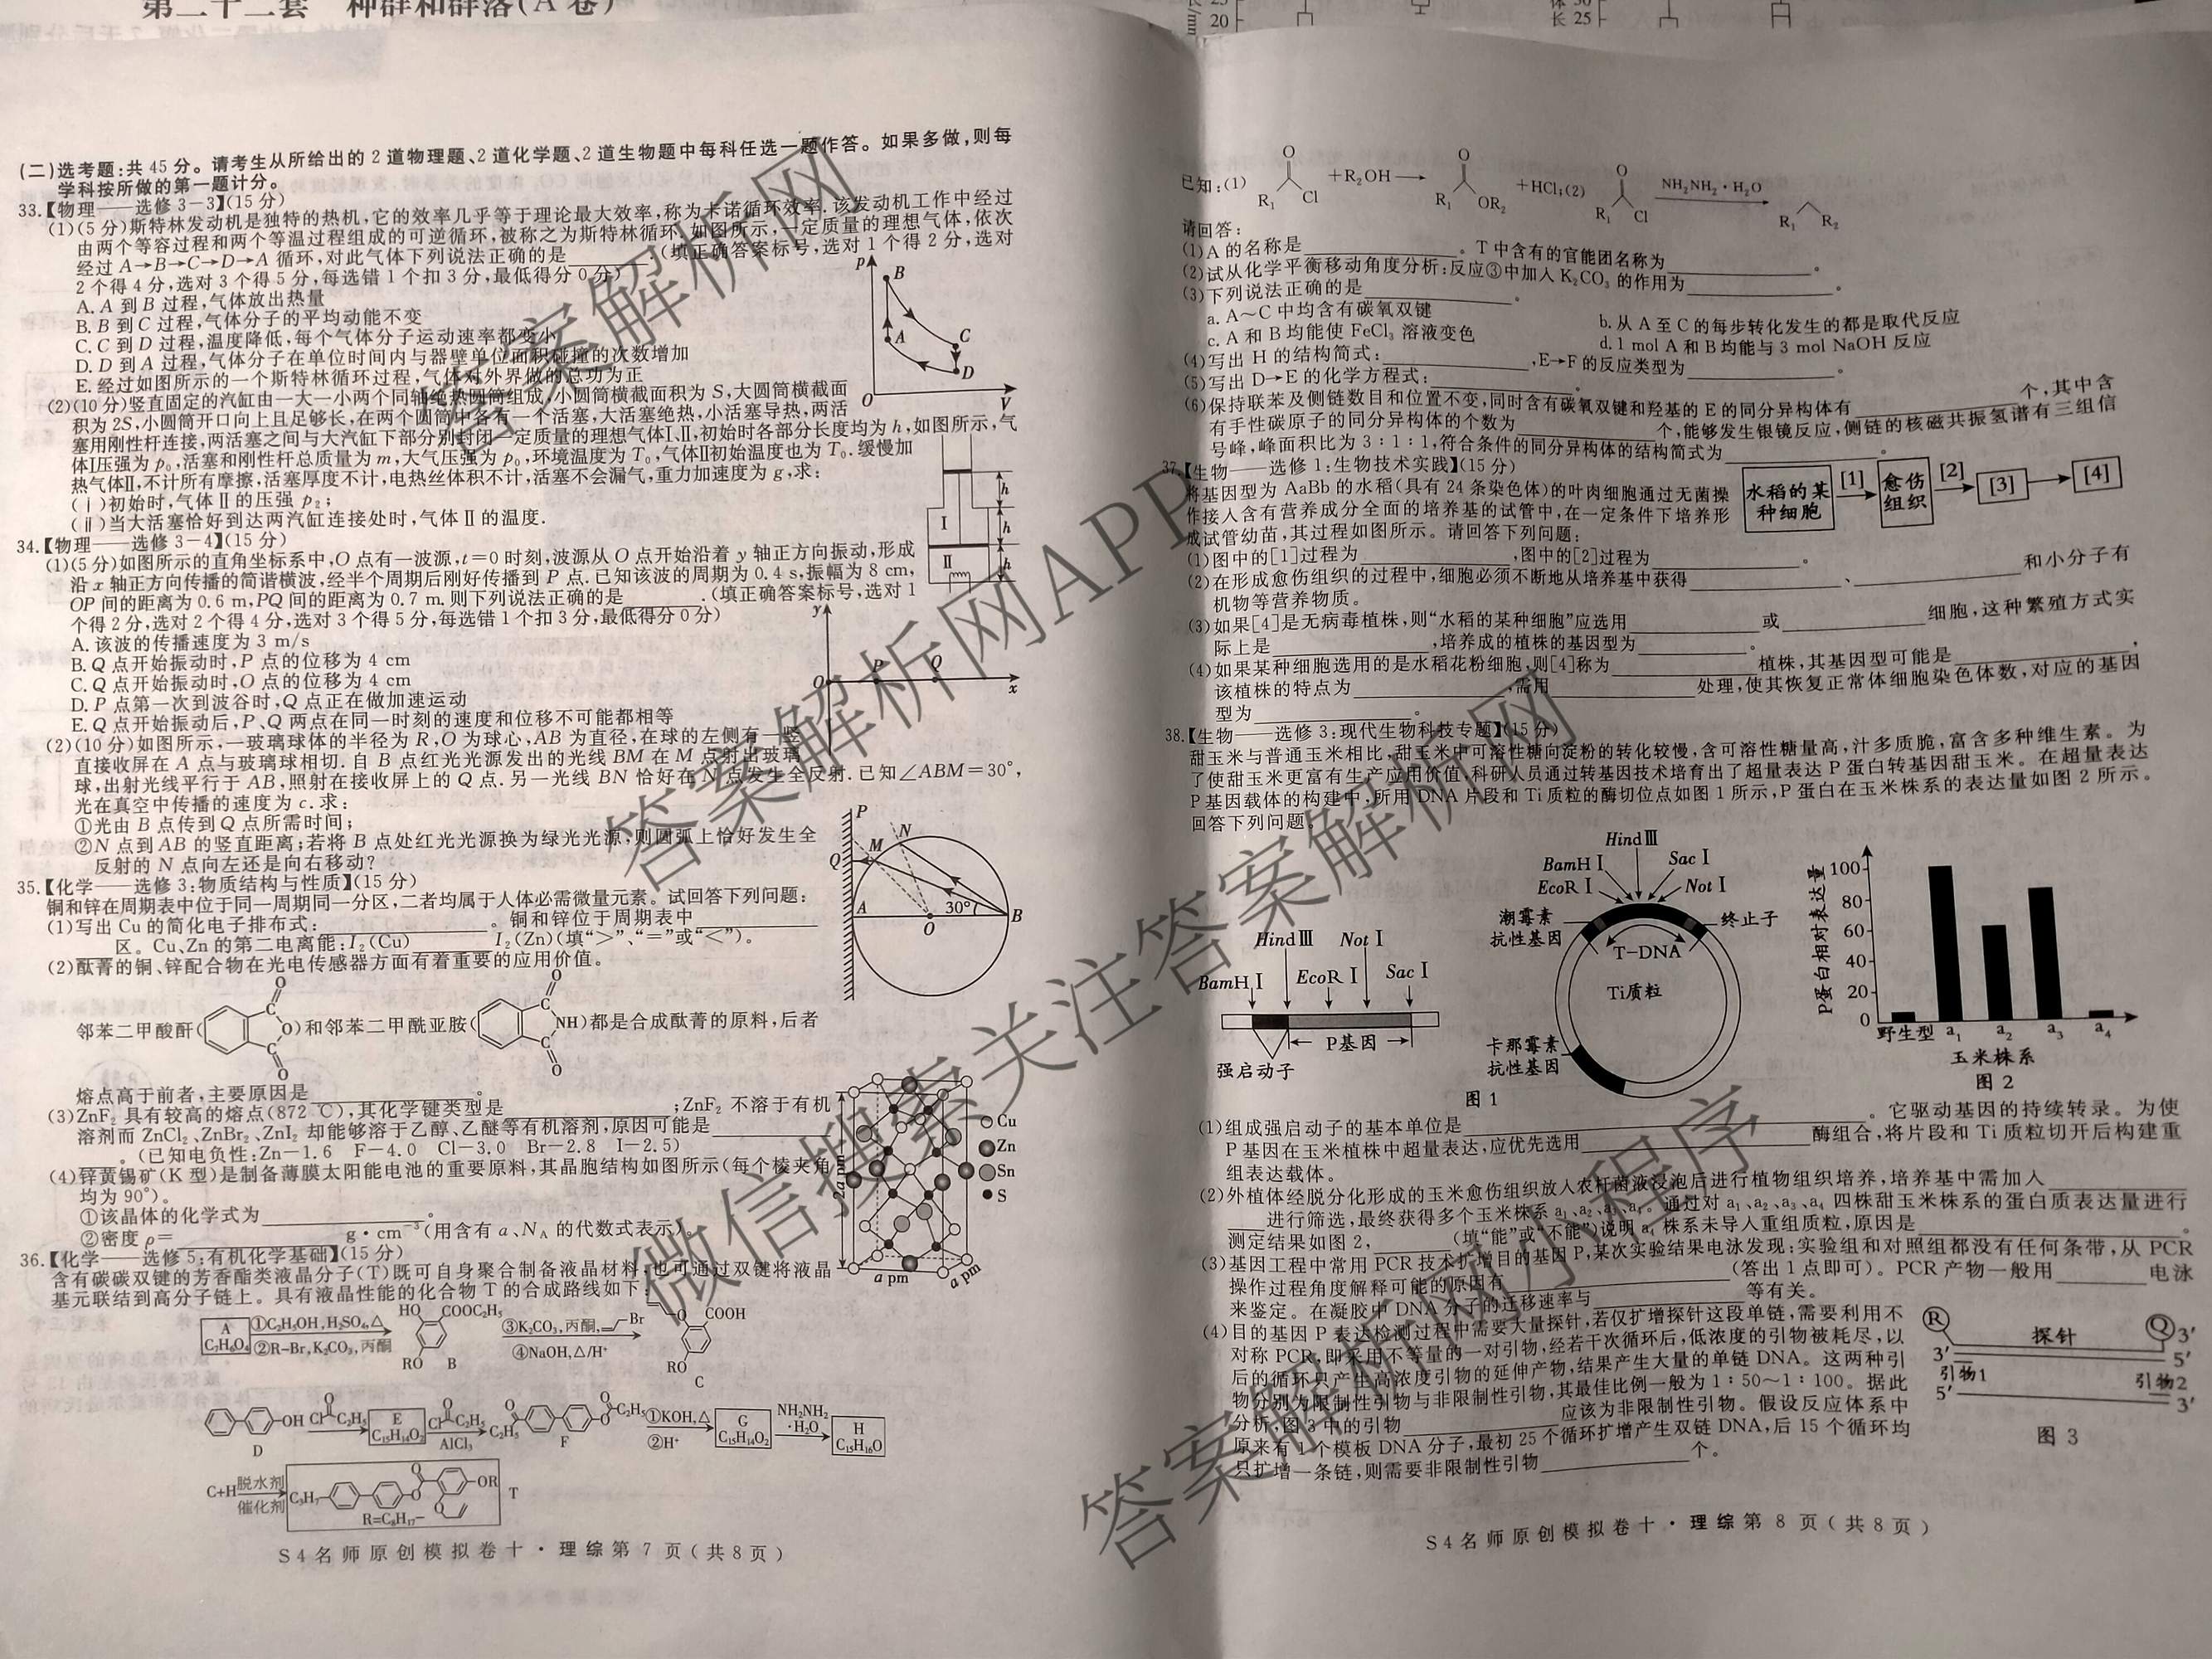 第二十二套 种群和群落(A卷)
20
长/mm
长 25
(二)选考题:共45分。请考生从所给出的2道物理题、2道化学题、2道生物题中每科任选一题作答。如果多做,则每
学科按所做的第一题计分。
33.【物理——选修3-3】(15分)
(1)(5分)斯特林发动机是独特的热机,它的效率几乎等于理论最大效率,称为卡诺循环效率.该发动机工作中经过
由两个等容过程和两个等温过程组成的可逆循环,被称之为斯特林循环.如图所示,一定质量的理想气体,依次
经过A→B→C→D→A循环,对此气体下列说法正确的是________.(填正确答案标号,选对1个得2分,选对
2个得4分,选对3个得5分,每选错1个扣3分,最低得分0分)
A.A到B过程,气体放出热量
B.B到C过程,气体分子的平均动能不变
C.C到D过程,温度降低,每个气体分子运动速率都变小
D.D到A过程,气体分子在单位时间内与器壁单位面积碰撞的次数增加
E.经过如图所示的一个斯特林循环过程,气体对外界做的总功为正
p
B
A
C
D
O
V
(2)(10分)竖直固定的汽缸由一大一小两个同轴绝热圆筒组成,小圆筒横截面积为S,大圆筒横截面
积为2S,小圆筒开口向上且足够长,在两个圆筒中各有一个活塞,大活塞绝热,小活塞导热,两活
塞用刚性杆连接,两活塞之间与大汽缸下部分别封闭一定质量的理想气体Ⅰ、Ⅱ,初始时各部分长度均为h,如图所示,气
体Ⅰ压强为p₀,活塞和刚性杆总质量为m,大气压强为p₀,环境温度为T₀,气体Ⅱ初始温度也为T₀.缓慢加
热气体Ⅱ,不计所有摩擦,活塞厚度不计,电热丝体积不计,活塞不会漏气,重力加速度为g,求:
(ⅰ)初始时,气体Ⅱ的压强p₂;
(ⅱ)当大活塞恰好到达两汽缸连接处时,气体Ⅱ的温度.
Ⅰ
Ⅱ
h
h
h
34.【物理——选修3-4】(15分)
(1)(5分)如图所示的直角坐标系中,O点有一波源,t=0时刻,波源从O点开始沿着y轴正方向振动,形成
沿x轴正方向传播的简谐横波,经半个周期后刚好传播到P点.已知该波的周期为0.4 s,振幅为8 cm,
OP间的距离为0.6 m,PQ间的距离为0.7 m.则下列说法正确的是________.(填正确答案标号,选对1
个得2分,选对2个得4分,选对3个得5分,每选错1个扣3分,最低得分0分)
A.该波的传播速度为3 m/s
B.Q点开始振动时,P点的位移为4 cm
C.Q点开始振动时,O点的位移为4 cm
D.P点第一次到波谷时,Q点正在做加速运动
E.Q点开始振动后,P、Q两点在同一时刻的速度和位移不可能都相等
y
O
P
Q
x
(2)(10分)如图所示,一玻璃球体的半径为R,O为球心,AB为直径,在球的左侧有一竖
直接收屏在A点与玻璃球相切.自B点红光光源发出的光线BM在M点射出玻璃
球,出射光线平行于AB,照射在接收屏上的Q点.另一光线BN恰好在N点发生全反射.已知∠ABM=30°,
光在真空中传播的速度为c.求:
①光由B点传到Q点所需时间;
②N点到AB的竖直距离;若将B点处红光光源换为绿光光源,则圆弧上恰好发生全
反射的N点向左还是向右移动?
P
N
M
Q
A
30°
B
O
35.【化学——选修3:物质结构与性质】(15分)
铜和锌在周期表中位于同一周期同一分区,二者均属于人体必需微量元素。试回答下列问题:
(1)写出Cu的简化电子排布式:________。铜和锌位于周期表中
________区。Cu、Zn的第二电离能:I₂(Cu)________I₂(Zn)(填“>”、“=”或“<”)。
(2)酞菁的铜、锌配合物在光电传感器方面有着重要的应用价值。
O
C
O
C
O
O
C
NH
C
O
邻苯二甲酸酐( )和邻苯二甲酰亚胺( )都是合成酞菁的原料,后者
熔点高于前者,主要原因是________。
(3)ZnF₂具有较高的熔点(872 ℃),其化学键类型是________;ZnF₂不溶于有机
溶剂而ZnCl₂、ZnBr₂、ZnI₂却能够溶于乙醇、乙醚等有机溶剂,原因可能是________
。(已知电负性:Zn—1.6 F—4.0 Cl—3.0 Br—2.8 I—2.5)
(4)锌黄锡矿(K型)是制备薄膜太阳能电池的重要原料,其晶胞结构如图所示(每个棱夹角
均为90°)。
①该晶体的化学式为________。
②密度ρ=________g·cm⁻³(用含有a、N_A的代数式表示)。
2a pm
Cu
Zn
Sn
S
a pm
a pm
36.【化学——选修5:有机化学基础】(15分)
含有碳碳双键的芳香酯类液晶分子(T)既可自身聚合制备液晶材料,也可通过双键将液晶
基元联结到高分子链上。具有液晶性能的化合物T的合成路线如下:
A
C₇H₆O₄
①C₂H₅OH,H₂SO₄,△
②R-Br,K₂CO₃,丙酮
HO COOC₂H₅
RO B
③K₂CO₃,丙酮, Br
④NaOH,△/H⁺
O COOH
RO
C
OH
D
Cl C₂H₅
E
C₁₅H₁₄O₂
Cl C₂H₅
AlCl₃
C₂H₅ O C₂H₅
F
①KOH,△
②H⁺
G
C₁₅H₁₄O₂
NH₂NH₂
·H₂O
H
C₁₅H₁₆O
C+H 脱水剂
催化剂
C₃H₇ O OR
O
R=C₈H₁₇—
T
S4名师原创模拟卷十·理综第7页(共8页)
已知:(1) R₁ Cl +R₂OH→ R₁ OR₂ +HCl;(2) R₁ Cl NH₂NH₂·H₂O R₁ R₂
请回答:
(1)A的名称是________。T中含有的官能团名称为________。
(2)试从化学平衡移动角度分析:反应③中加入K₂CO₃的作用为________。
(3)下列说法正确的是________。
a.A~C中均含有碳氧双键
b.从A至C的每步转化发生的都是取代反应
c.A和B均能使FeCl₃溶液变色
d.1 mol A和B均能与3 mol NaOH反应
(4)写出H的结构简式:________,E→F的反应类型为________。
(5)写出D→E的化学方程式:________。
(6)保持联苯及侧链数目和位置不变,同时含有碳氧双键和羟基的E的同分异构体有________个,其中含
有手性碳原子的同分异构体的个数为________个,能够发生银镜反应,侧链的核磁共振氢谱有三组信
号峰,峰面积比为3∶1∶1,符合条件的同分异构体的结构简式为________。
37.【生物——选修1:生物技术实践】(15分)
将基因型为AaBb的水稻(具有24条染色体)的叶肉细胞通过无菌操
作接入含有营养成分全面的培养基的试管中,在一定条件下培养形
成试管幼苗,其过程如图所示。请回答下列问题:
水稻的某
种细胞
[1]
愈伤
组织
[2]
[3]
[4]
(1)图中的[1]过程为________,图中的[2]过程为________。
(2)在形成愈伤组织的过程中,细胞必须不断地从培养基中获得________、________和小分子有
机物等营养物质。
(3)如果[4]是无病毒植株,则“水稻的某种细胞”应选用________或________细胞,这种繁殖方式实
际上是________,培养成的植株的基因型为________。
(4)如果某种细胞选用的是水稻花粉细胞,则[4]称为________植株,其基因型可能是________,
该植株的特点为________,需用________处理,使其恢复正常体细胞染色体数,对应的基因
型为________。
38.【生物——选修3:现代生物科技专题】(15分)
甜玉米与普通玉米相比,甜玉米中可溶性糖向淀粉的转化较慢,含可溶性糖量高,汁多质脆,富含多种维生素。为
了使甜玉米更富有生产应用价值,科研人员通过转基因技术培育出了超量表达P蛋白转基因甜玉米。在超量表达
P基因载体的构建中,所用DNA片段和Ti质粒的酶切位点如图1所示,P蛋白在玉米株系的表达量如图2所示。
回答下列问题。
HindⅢ NotⅠ
BamHⅠ EcoRⅠ SacⅠ
P基因
强启动子
HindⅢ
BamHⅠ SacⅠ
EcoRⅠ NotⅠ
潮霉素
抗性基因
终止子
T-DNA
Ti质粒
卡那霉素
抗性基因
图1
P蛋白相对表达量
100
80
60
40
20
0
野生型 a₁ a₂ a₃ a₄
玉米株系
图2
(1)组成强启动子的基本单位是________。它驱动基因的持续转录。为使
P基因在玉米植株中超量表达,应优先选用________酶组合,将片段和Ti质粒切开后构建重
组表达载体。
(2)外植体经脱分化形成的玉米愈伤组织放入农杆菌液浸泡后进行植物组织培养,培养基中需加入________
____进行筛选,最终获得多个玉米株系a₁、a₂、a₃、a₄。通过对a₁、a₂、a₃、a₄四株甜玉米株系的蛋白质表达量进行
测定结果如图2,________(填“能”或“不能”)说明a₄株系未导入重组质粒,原因是________。
(3)基因工程中常用PCR技术扩增目的基因P,某次实验结果电泳发现:实验组和对照组都没有任何条带,从PCR
操作过程角度解释可能的原因有________(答出1点即可)。PCR产物一般用________电泳
来鉴定。在凝胶中DNA分子的迁移速率与________等有关。
(4)目的基因P表达检测过程中需要大量探针,若仅扩增探针这段单链,需要利用不
对称PCR,即采用不等量的一对引物,经若干次循环后,低浓度的引物被耗尽,以
后的循环只产生高浓度引物的延伸产物,结果产生大量的单链DNA。这两种引
物分别为限制性引物与非限制性引物,其最佳比例一般为1∶50~1∶100。据此
分析,图3中的引物________应该为非限制性引物。假设反应体系中
原来有1个模板DNA分子,最初25个循环扩增产生双链DNA,后15个循环均
只扩增一条链,则需要非限制性引物________个。
R 探针 Q
3′
3′ 5′
引物1 引物2
5′ 3′
图3
S4名师原创模拟卷十·理综第8页(共8页)
答案解析网
答案解析网APP
微信搜索关注答案解析网
答案解析网小程序